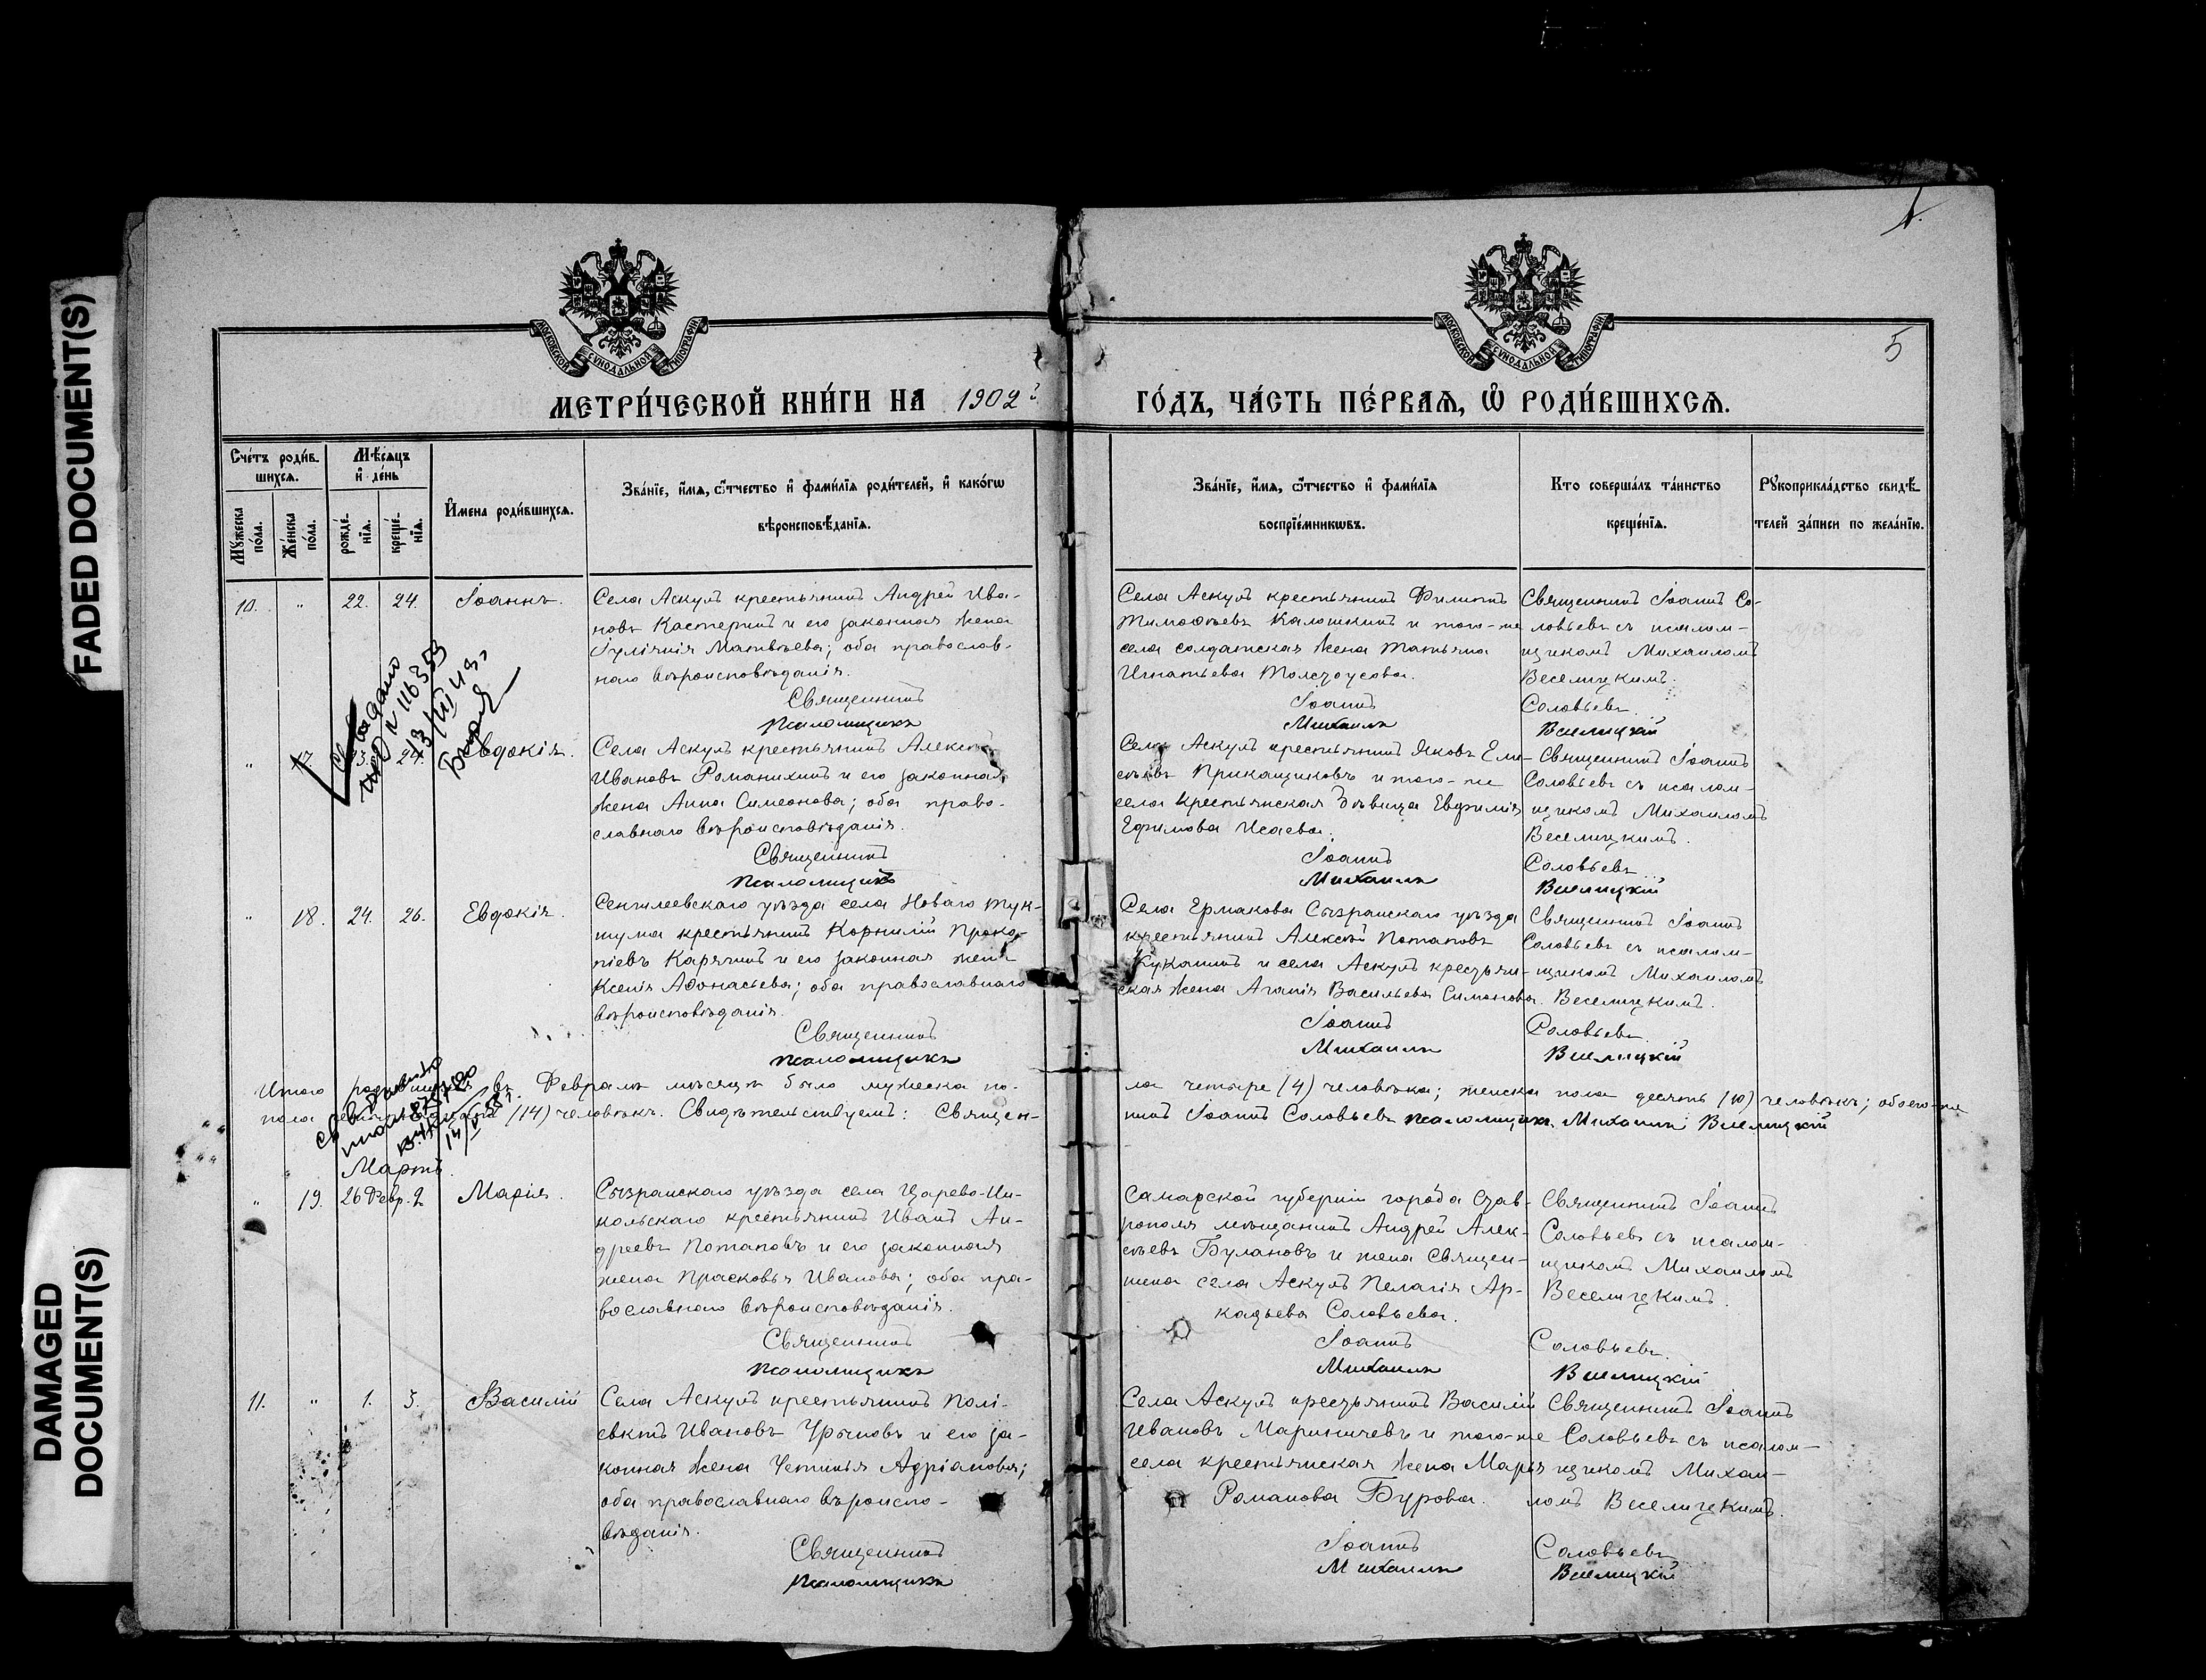 FADED DOCUMENT(S)
DAMAGED
DOCUMENT(S)
5
МОСКОВСКОЙ СѴНОДАЛЬНОЙ ТИПОГРАФІИ
МОСКОВСКОЙ СѴНОДАЛЬНОЙ ТИПОГРАФІИ
МЕТРИ́ЧЕСКОЙ КНИ́ГИ НА 1902 ГО́ДЪ, ЧА́СТЬ ПЕ́РВАѦ, Ѡ҆ РОДИ́ВШИХСѦ.
Сче́тъ роди́в
шихсѧ.
Мѣ́сѧцъ
и҆ де́нь
Мꙋ́жеска
по́ла.
Же́нска
по́ла.
рожде́-
нїѧ.
креще́-
нїѧ.
И҆мена роди́вшихсѧ.
Зва́нїе, и҆́мѧ, ѻ҆́тчество и҆ фами́лїѧ роди́телей, и҆ како́гѡ
вѣроисповѣ́данїѧ.
Зва́нїе, и҆́мѧ, ѻ҆́тчество и҆ фами́лїѧ
воспрїе́мникѡвъ.
Кто соверша́лъ та́инство
креще́нїѧ.
Рꙋкоприкла́дство свидѣ́
телей за́писи по жела́нїю.
10. " 22. 24. Іоаннъ.
Села Аскулъ крестьянинъ Андрей Ива-
новъ Кастеринъ и его законная жена
Іуліанія Матвѣева; оба православ-
наго вѣроисповѣданія.
Священникъ
Псаломщикъ
Села Аскулъ крестьянинъ Филиппъ
Тимофѣевъ Калошкинъ и того-же
села солдатская жена Татьяна
Игнатьева Толстоусова.
Іоаннъ
Михаилъ
Священникъ Іоаннъ Со-
ловьевъ съ псалом-
щикомъ Михаиломъ
Веселицкимъ.
Соловьевъ
Веселицкій
" 17. 24. Евдокія.
Села Аскулъ крестьянинъ Алексѣй
Ивановъ Романихинъ и его законная
жена Анна Симеонова; оба право-
славнаго вѣроисповѣданія.
Священникъ
Псаломщикъ
Села Аскулъ крестьянинъ Яковъ Ели-
сѣевъ Прикащиковъ и того-же
села крестьянская дѣвица Евфимія
Ефимова Исаева.
Іоаннъ
Михаилъ
Священникъ Іоаннъ
Соловьевъ съ псалом-
щикомъ Михаиломъ
Веселицкимъ.
Соловьевъ
Веселицкій
" 18. 24. 26. Евдокія.
Сенгилеевскаго уѣзда села Новаго Тук-
шума крестьянинъ Корнилій Проко-
піевъ Карячинъ и его законная жена
Ксенія Афонасьева; оба православнаго
вѣроисповѣданія.
Священникъ
Псаломщикъ
Села Ермакова Сызранскаго уѣзда
крестьянинъ Алексѣй Потаповъ
Куканинъ и села Аскулъ крестьян-
ская жена Агапія Васильева Симонова.
Іоаннъ
Михаилъ
Священникъ Іоаннъ
Соловьевъ съ псалом-
щикомъ Михаиломъ
Веселицкимъ.
Соловьевъ
Веселицкій
Итого родившихся въ Февралѣ мѣсяцѣ было мужеска по-
ла четыре (4) человѣка; женска пола десять (10) человѣкъ; обоего-же
пола (14) человѣкъ. Свидѣтельствуемъ: Священ-
никъ Іоаннъ Соловьевъ Псаломщикъ Михаилъ Веселицкій
Мартъ.
" 19. 26 Февр. 2 Марія.
Сызранскаго уѣзда села Царево-Ни-
кольскаго крестьянинъ Иванъ Ан-
дреевъ Потаповъ и его законная
жена Прасковья Иванова; оба пра-
вославнаго вѣроисповѣданія.
Священникъ
Псаломщикъ
Самарской губерніи города Став-
рополя мѣщанинъ Андрей Алек-
сѣевъ Булановъ и жена священ-
ника села Аскулъ Пелагія Ар-
кадьева Соловьева.
Іоаннъ
Михаилъ
Священникъ Іоаннъ
Соловьевъ съ псалом-
щикомъ Михаиломъ
Веселицкимъ.
Соловьевъ
Веселицкій
11. " 1. 3. Василій
Села Аскулъ крестьянинъ Полі-
евктъ Ивановъ Урычовъ и его за-
конная жена Устинья Адріанова;
оба православнаго вѣроиспо-
вѣданія.
Священникъ
Псаломщикъ
Села Аскулъ крестьянинъ Василій
Ивановъ Мариничевъ и того-же
села крестьянская жена Марья
Романова Бурова.
Іоаннъ
Михаилъ
Священникъ Іоаннъ
Соловьевъ съ псалом-
щикомъ Михаи-
ломъ Веселицкимъ.
Соловьевъ
Веселицкій